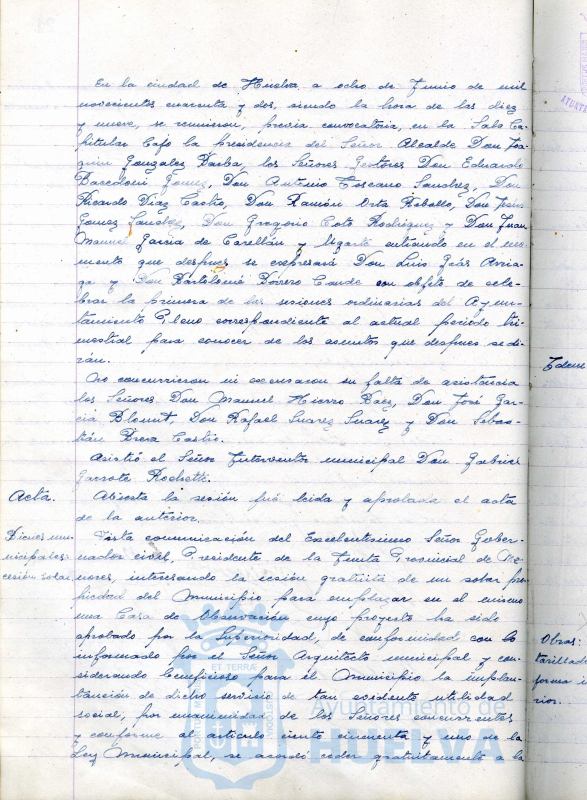 En la ciudad de Huelva a ocho de Junio de mil
novecientos cuarenta y dos, siendo la hora de las diez
y nueve, se reunieron, previa convocatoria, en la Sala Ca-
pitular bajo la presidencia del Señor Alcalde Don Joa-
quin Gonzalez Barba, los Señores Gestores Don Eduardo
Gomez, Don Antonio Toscano Sanchez, Don
Ricardo Diaz Castro, Don Ramón Orta Rebollo, Don
Gomez Sanchez, Don Gregorio Coto Rodriguez y Don Juan
Manuel Garcia de Carellán y Ugarte entrando en el mo-
mento que despues se expresará Don Luis Arria-
ga y Don Bartolomé Borrero Conde con objeto de cele-
brar la primera de las sesiones ordinarias del Ayun-
tamiento Pleno correspondiente al actual periodo tri-
mestral para conocer de los asuntos que despues se di-
rán.
No concurrieron ni excusaron su falta de asistencia
los Señores Don Manuel Hierro Baez, Don José Gar-
cia Blount, Don Rafael Suarez Suarez y Don Sebas-
tián Brera Castro.
Asistió el Señor Interventor municipal Don Gabriel
Garrote Rochetti.
Acta.
Abierta la sesión fué leida y aprobada el acta
de la anterior.
Bienes mu-
nicipales:
cesión solar
Vista comunicación del Excelentisimo Señor Gober-
nador civil, Presidente de la Junta Provincial de Me-
nores, interesando la cesión gratuita de un solar pro-
piedad del Municipio para emplazar en el mismo
una Casa de Observación cuyo proyecto ha sido
aprobado por la Superioridad, de conformidad con lo
informado por el Señor Arquitecto municipal y con-
siderando beneficioso para el Municipio la implan-
tación de dicho servicio de tan evidente utilidad
social, por unanimidad de los Señores concurrentes
y conforme al articulo ciento cincuenta y uno de la
Ley Municipal, se acordó ceder gratuitamente a la
Idem
Obras:
forma in
rior.
Ayuntamiento de
HUELVA